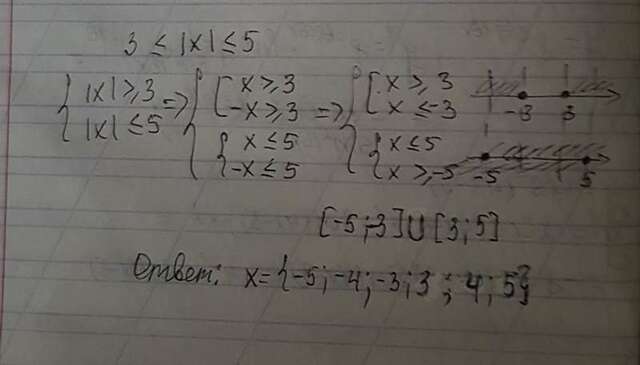 3 ≤ |x| ≤ 5
{ |x| ≥ 3 => { [ x ≥ 3 => { [ x ≥ 3
|x| ≤ 5 -x ≥ 3 x ≤ -3
{ x ≤ 5 { x ≤ 5
-x ≤ 5 x ≥ -5
-3 3
-5 5
[-5;-3]U[3;5]
Ответ: x={-5;-4;-3;3;4;5}